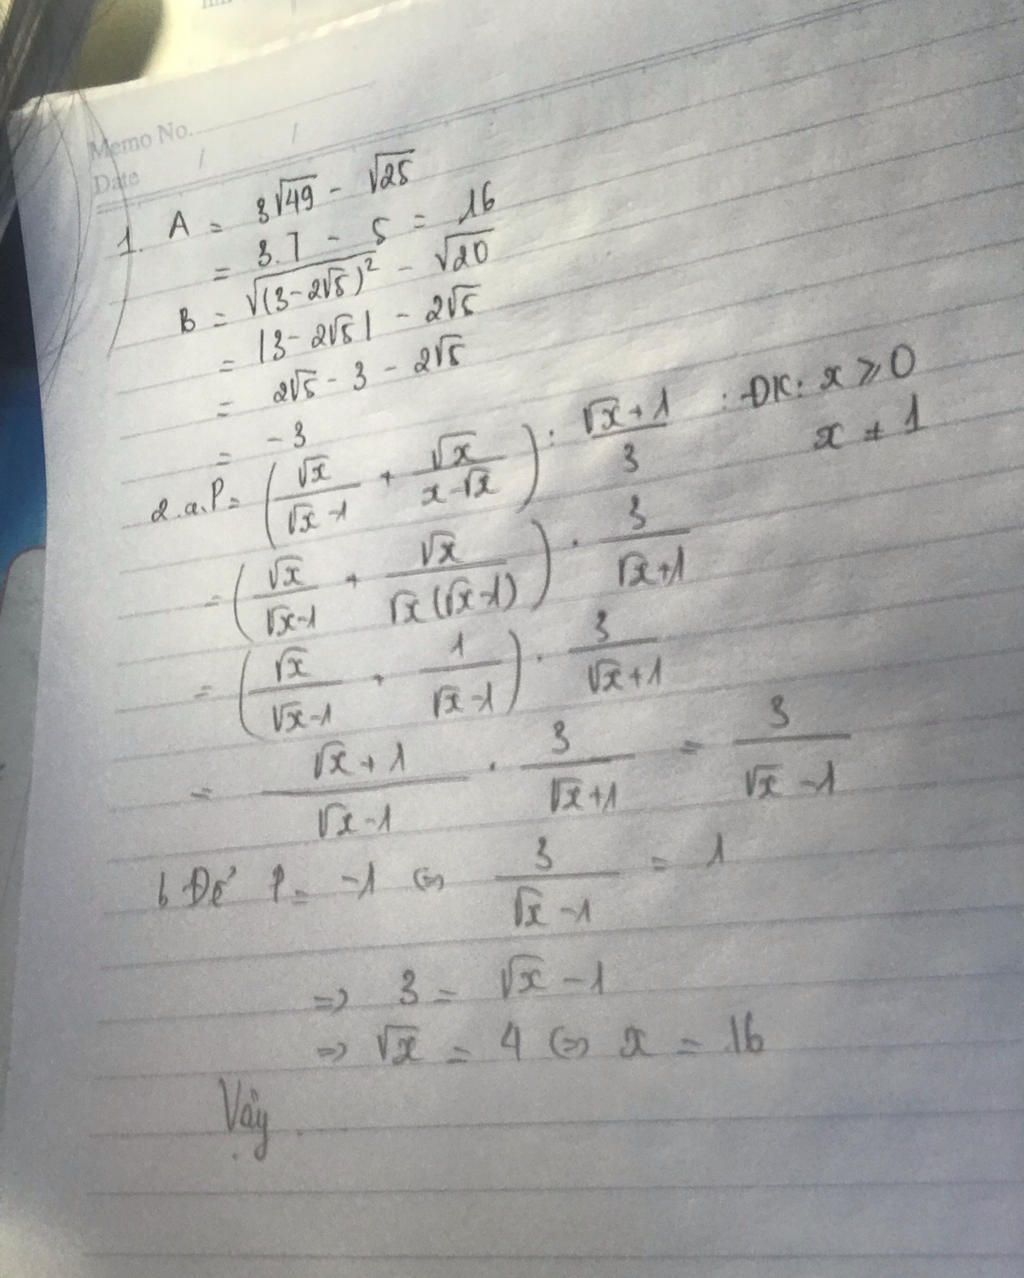 Memo No.
Date / /
1. A = 3√49 - √25
= 3.7 - 5 = 16
B = √(3-2√5)² - √20
= |3-2√5| - 2√5
= 2√5 - 3 - 2√5
= -3
2.a.P= (√x/(√x-1) + √x/(x-√x)) : (√x+1)/3 : ĐK: x ⩾ 0
x ≠ 1
= (√x/(√x-1) + √x/(√x(√x-1))) . 3/(√x+1)
= (√x/(√x-1) + 1/(√x-1)) . 3/(√x+1)
= (√x+1)/(√x-1) . 3/(√x+1) = 3/(√x-1)
b Để P = -1 ⇔ 3/(√x-1) = 1
=> 3 = √x - 1
=> √x = 4 ⇔ x = 16
Vậy